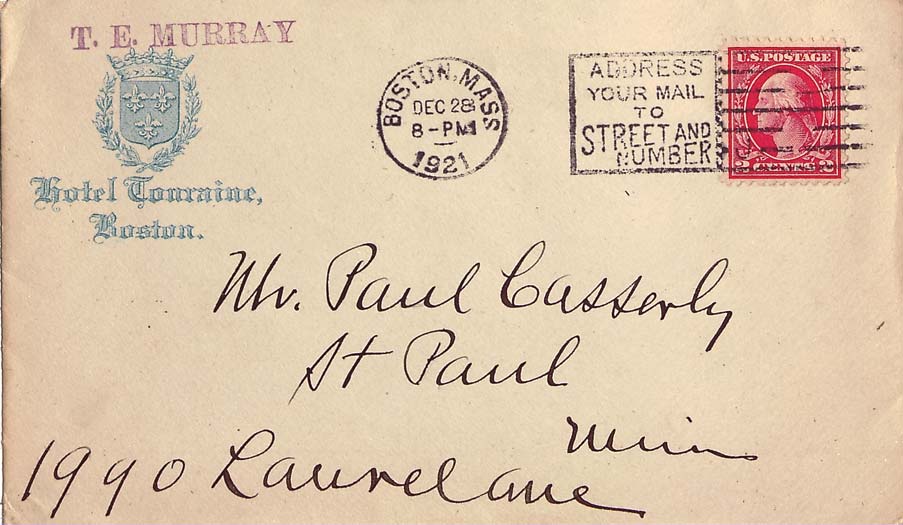 T. E. MURRAY
Hotel Touraine,
Boston.
BOSTON, MASS
DEC 28
8-PM
1921
ADDRESS
YOUR MAIL
TO
STREET AND
NUMBER
U.S. POSTAGE
2 CENTS 2
Mr. Paul Casserly
St Paul
Minn
1990 Laurel ave